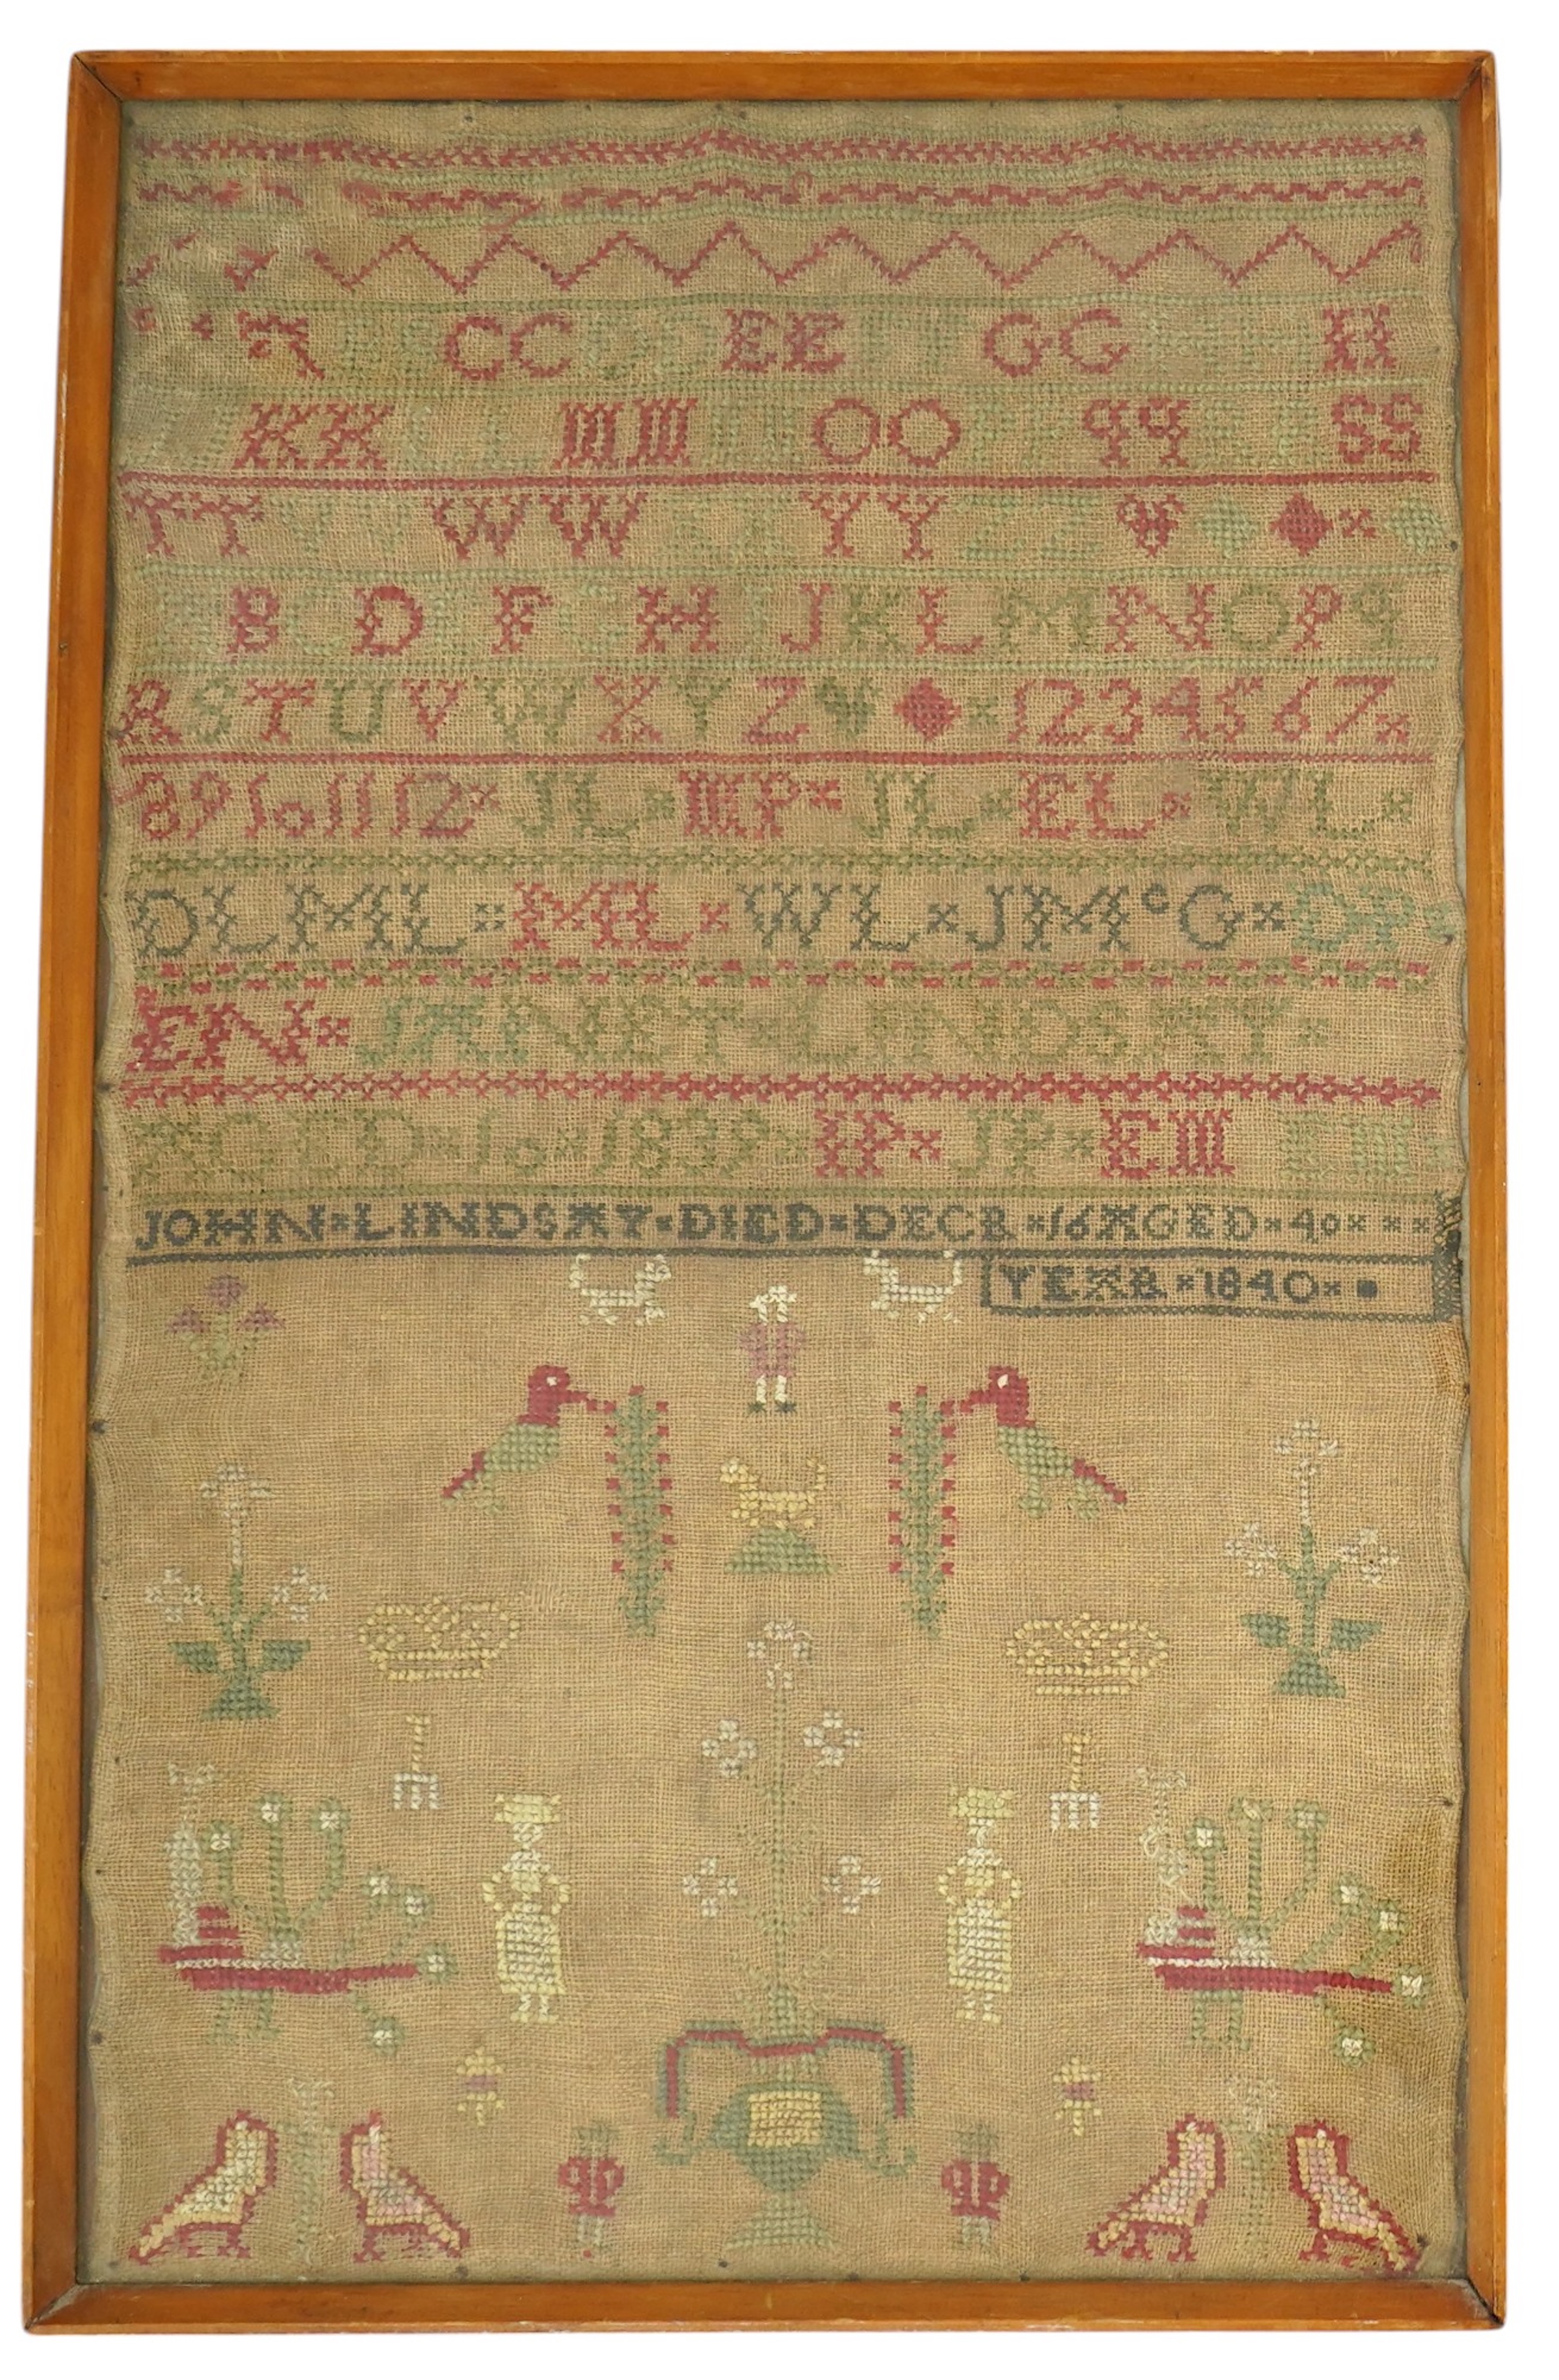 A CC DD EE GG H
KK LL MM NN OO PP qq RR SS
TT VV WW XX YY ZZ
B C D E F G H I J K L M N O P q
R S T U V W X Y Z 1 2 3 4 5 6 7
8 9 10 11 12 JL MP JL EL WL
DL ML ML WL JMcG DP
EN JANET LINDSAY
AGED 10 1839 HP JP EM
JOHN LINDSAY DIED DECR 16 AGED 40
YEAR 1840